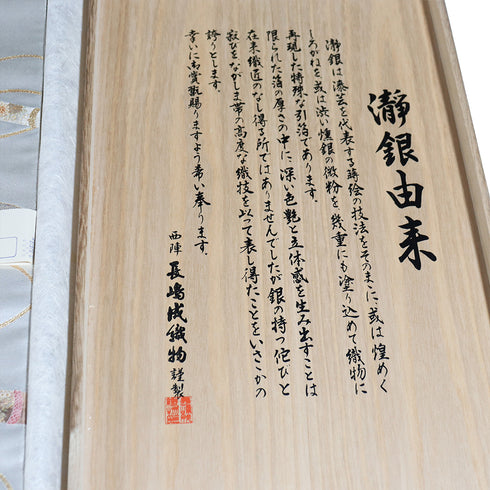 瀞銀由来
瀞銀は漆芸を代表する蒔絵の技法をそのまゝに、或は煌めく
しろがねを或は渋い燻銀の微粉を幾重にも塗り込めて織物に
再現した特殊な引箔であります。
限られた箔の厚さの中に、深い色艶と立体感を生み出すことは
在来織匠のなし得る所ではありませんでしたが銀の持つ侘びと
寂びをながしま帯の高度な織技を以って表し得たことをいさゝかの
誇りとします。
幸いに御賞翫賜りますよう希い奉ります。
西陣 長嶋成織物 謹製